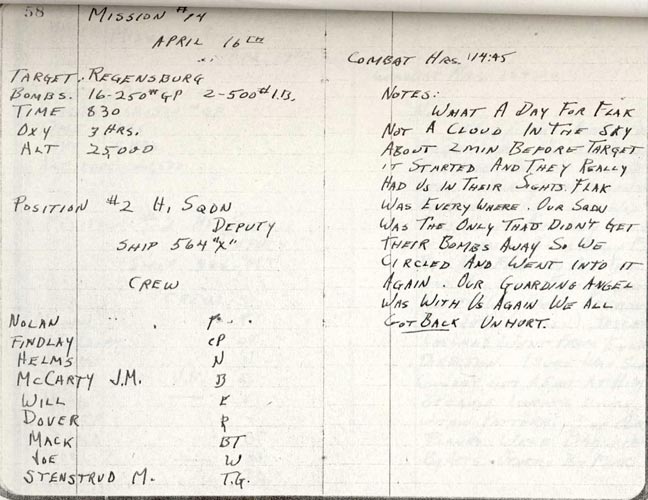 58
MISSION #14
APRIL 16TH
TARGET. REGENSBURG
BOMBS. 16-250#GP 2-500# I.B.
TIME 830
OXY 3 HRS.
ALT 25,000
POSITION #2 H, SQDN
DEPUTY
SHIP 564 "X"
CREW
NOLAN P
FINDLAY CP
HELMS N
MCCARTY J.M. B
WILL E
DOVER R
MACK BT
JOE W
STENSTRUD M. T.G.
COMBAT HRS. 114:45
NOTES:
WHAT A DAY FOR FLAK
NOT A CLOUD IN THE SKY
ABOUT 2 MIN BEFORE TARGET
IT STARTED AND THEY REALLY
HAD US IN THEIR SIGHTS. FLAK
WAS EVERY WHERE. OUR SQDN
WAS THE ONLY THAT DIDN'T GET
THEIR BOMBS AWAY SO WE
CIRCLED AND WENT INTO IT
AGAIN. OUR GUARDING ANGEL
WAS WITH US AGAIN WE ALL
GOT BACK UNHURT.